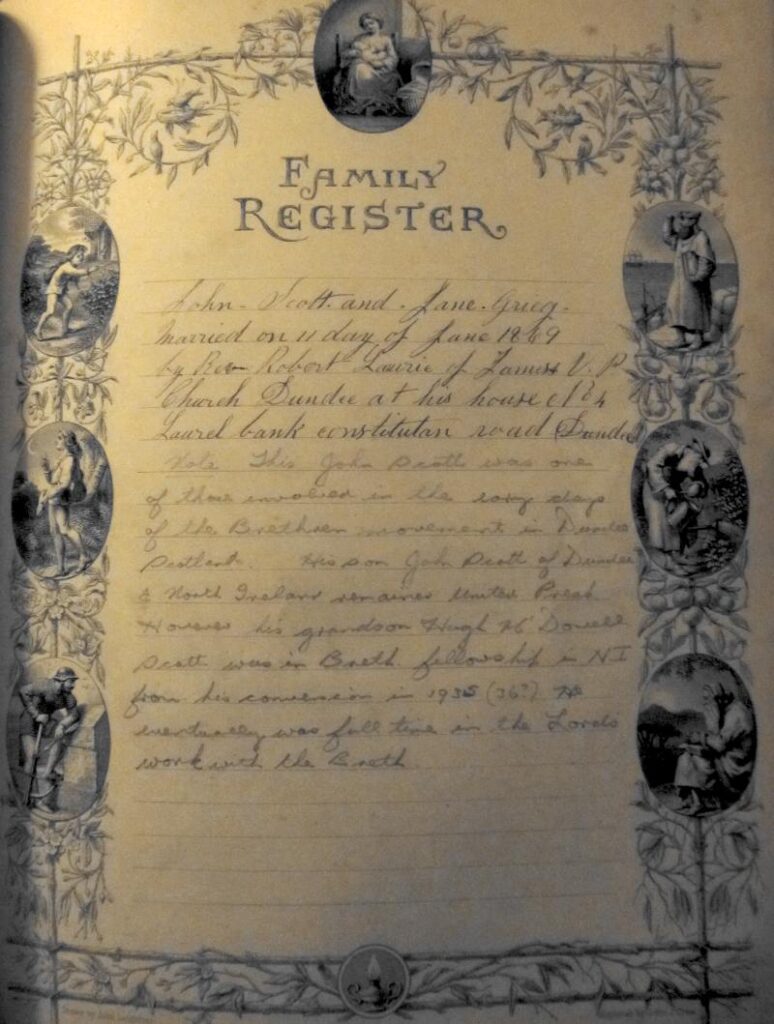 FAMILY
REGISTER
John - Scott. and . Jane. Grieg.
Married on 11 day of June 1869
by Rev Robert Laurie of James V. P
Church Dundee at his house No 4
Laurel bank constitutan road Dundee
Note This John Scott was one
of those involved in the early days
of the Brethren movement in Dundee
Scotland. His son John Scott of Dundee
& North Ireland remained United Presb.
However his grandson Hugh McDowell
Scott was in Breth. fellowship in N I
from his conversion in 1935 (36?) He
eventually was full time in the Lords
work with the Breth.